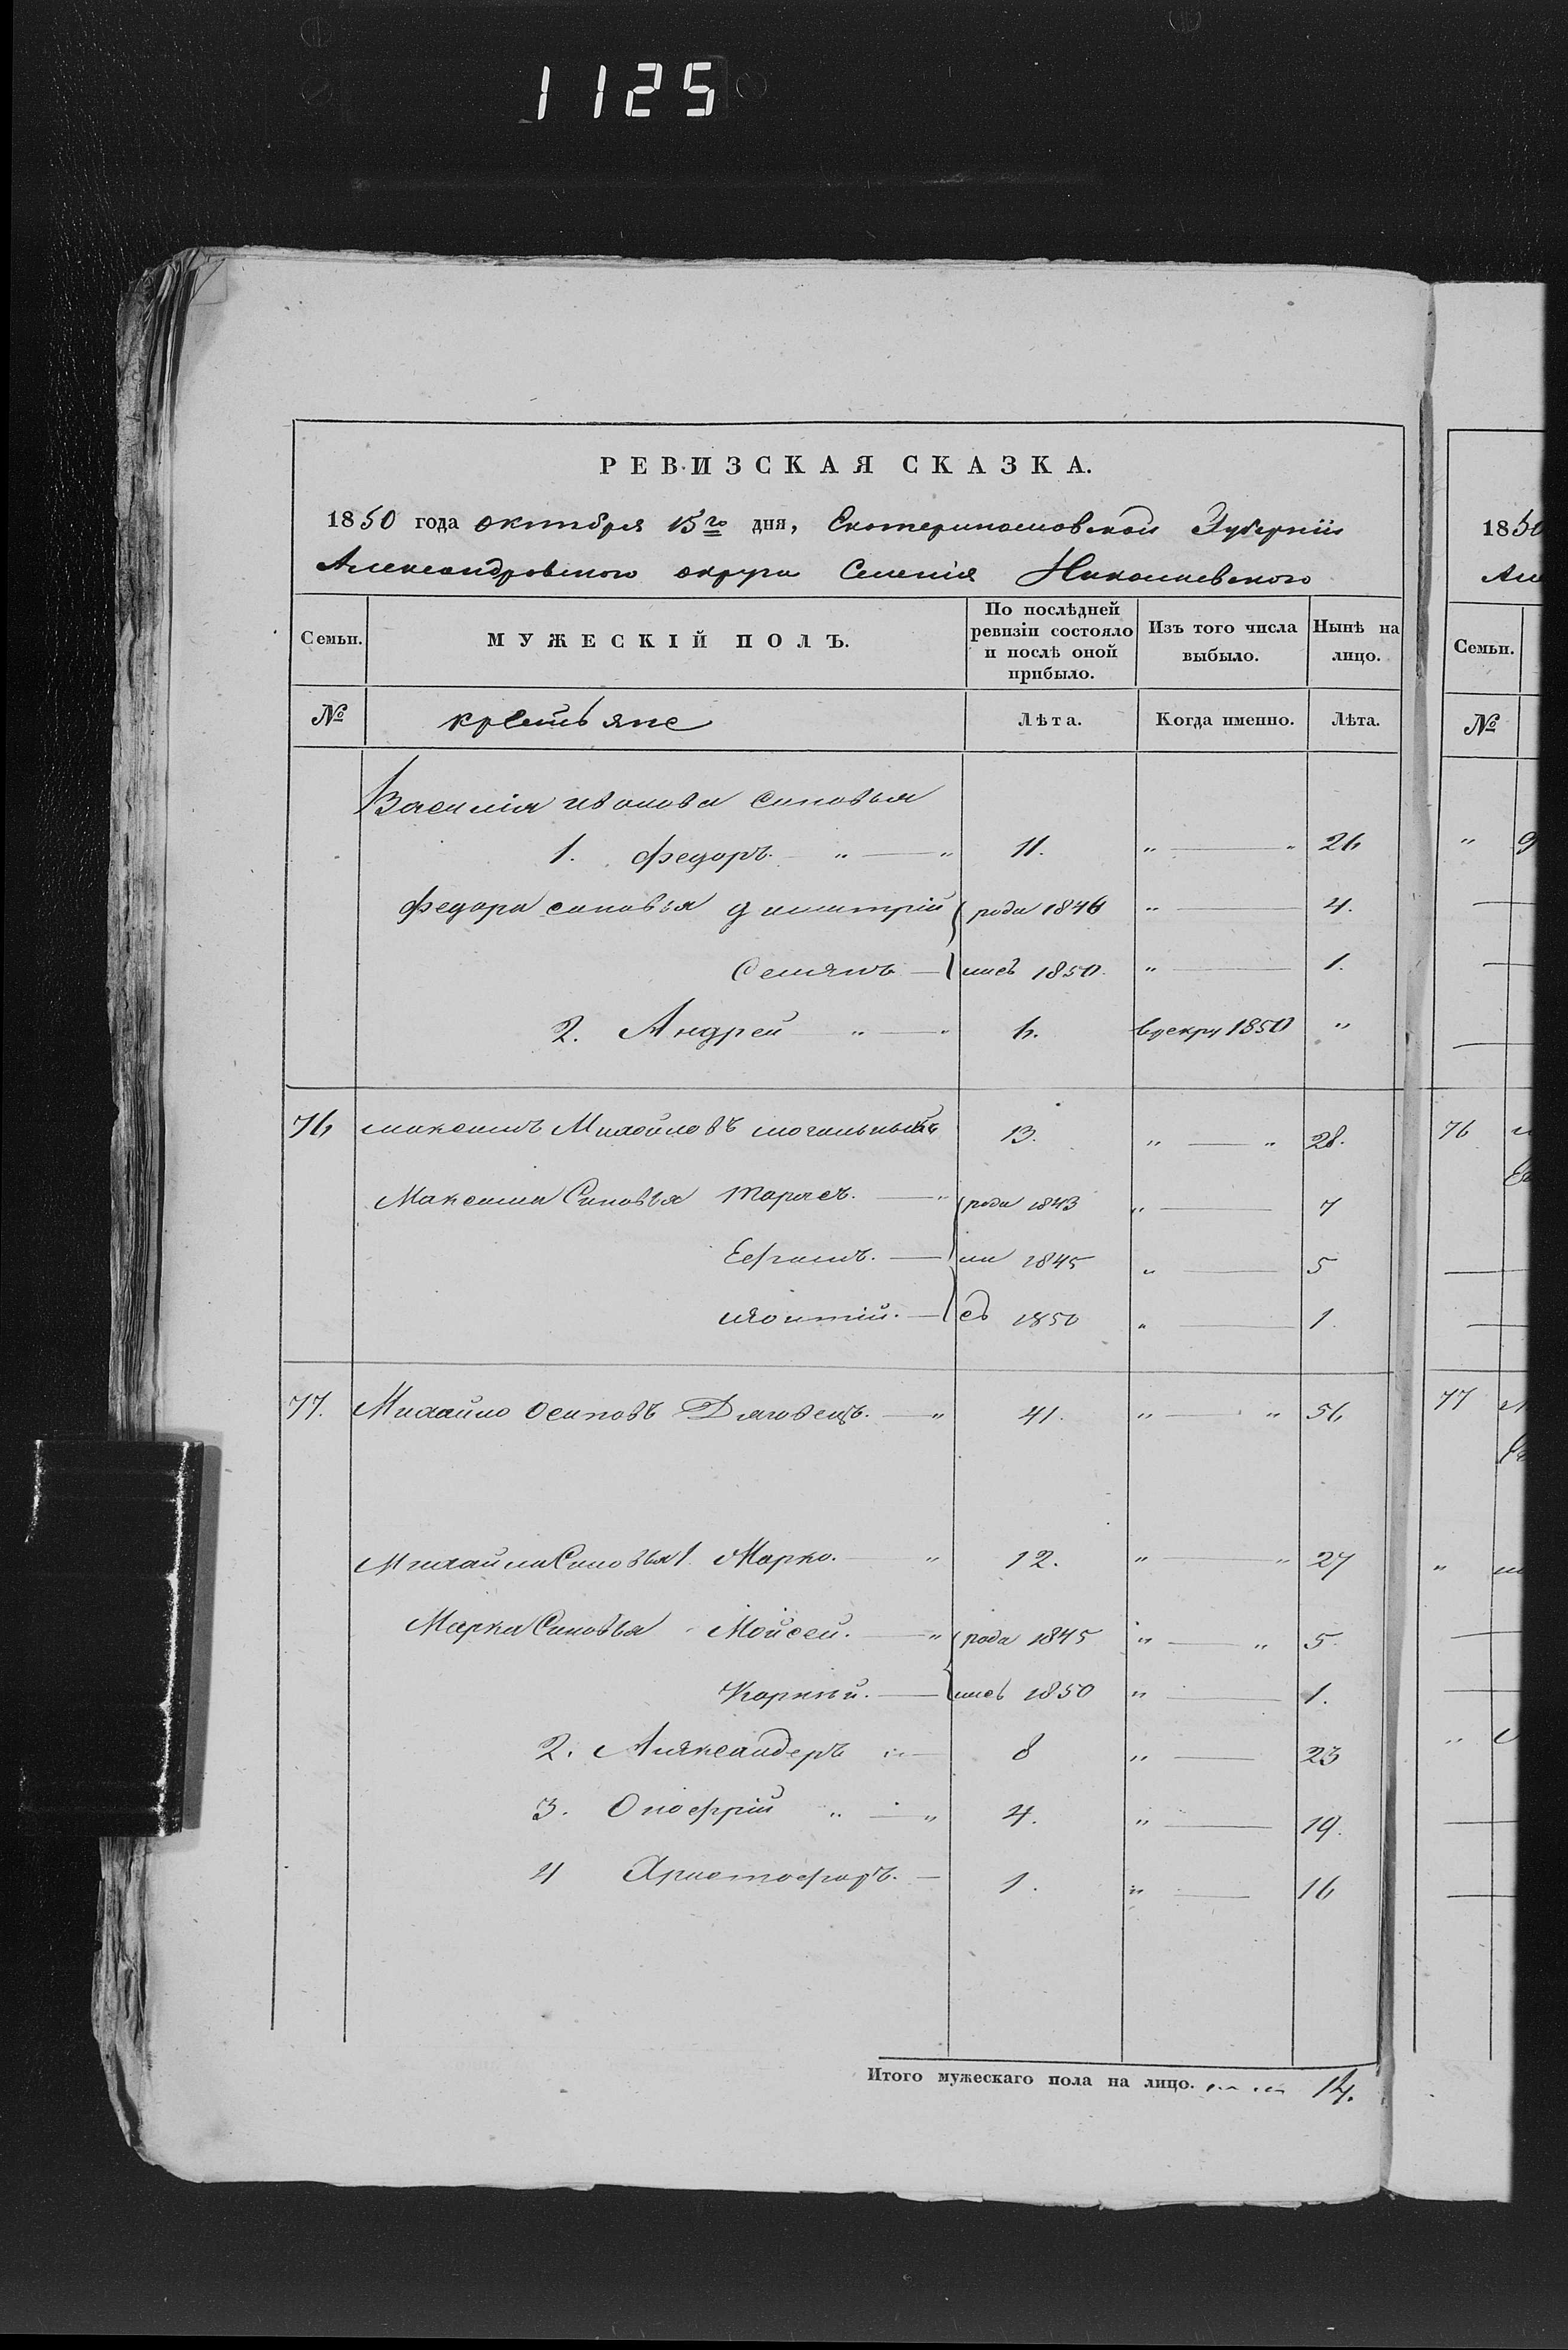 1125
РЕВИЗСКАЯ СКАЗКА.
1850 года октября 15го дня, Екатеринославской Губерніи
Александровского округа Селенія Николаевского
Семьи. МУЖЕСКІЙ ПОЛЪ. По послѣдней ревизіи состояло и послѣ оной прибыло. Изъ того числа выбыло. Нынѣ на лицо.
№ крестьяне Лѣта. Когда именно. Лѣта.
Василия иванова синовья
1. федоръ " — " 11. " — " 26
Федора синовья димитрій роди 1846 " — 4.
Семянъ — лись 1850. " — 1.
2. Андрей " — " 6. врекру 1850 "
76 максимъ Михайловъ могильный 13. " — " 28.
Максима Синовья тарасъ. — " роди 1843 " — 7
Ефимъ. — ли 1845 " — 5
леонтій. — сь 1850 " — 1.
77. Михайло Осиповъ — " 41. " — " 56
Михайла Синовья 1. Марко. " 12. " " 27
Марка Синовья Мойсей. — " роди 1845 " — " 5.
Корній. — лись 1850 " — 1.
2. Александеръ " — 8 " — 23
3. Онофрій " — " 4. " — 19.
4 Христофоръ. — 1. " — 16
Итого мужескаго пола на лицо. 14.
1850
Але
Семьи.
№
"
76
77
"
"